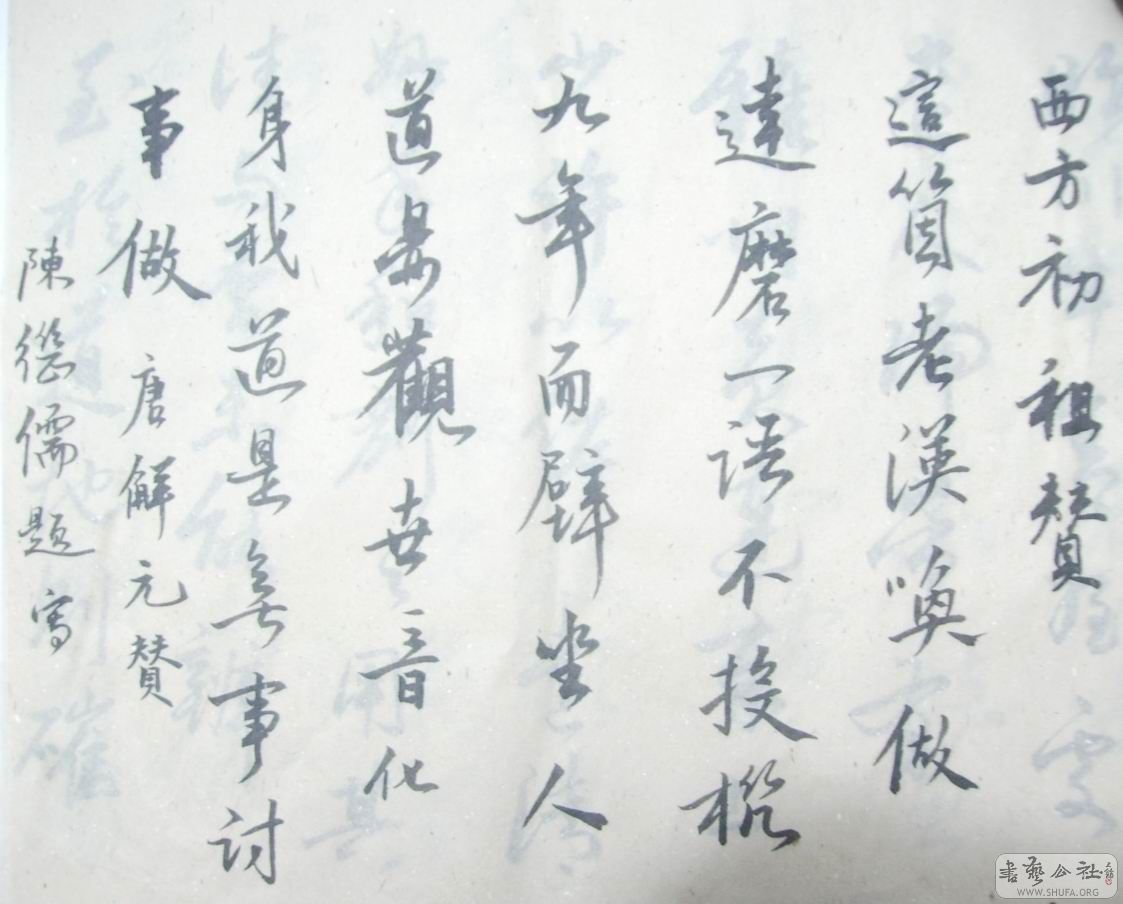 西方初祖贊
這箇老漢喚做
達磨一語不投機
九年面壁坐人
道是觀世音化
身我道是無事討
事做 唐解元贊
陳德儒題寫
書藝公社
WWW.SHUFA.ORG